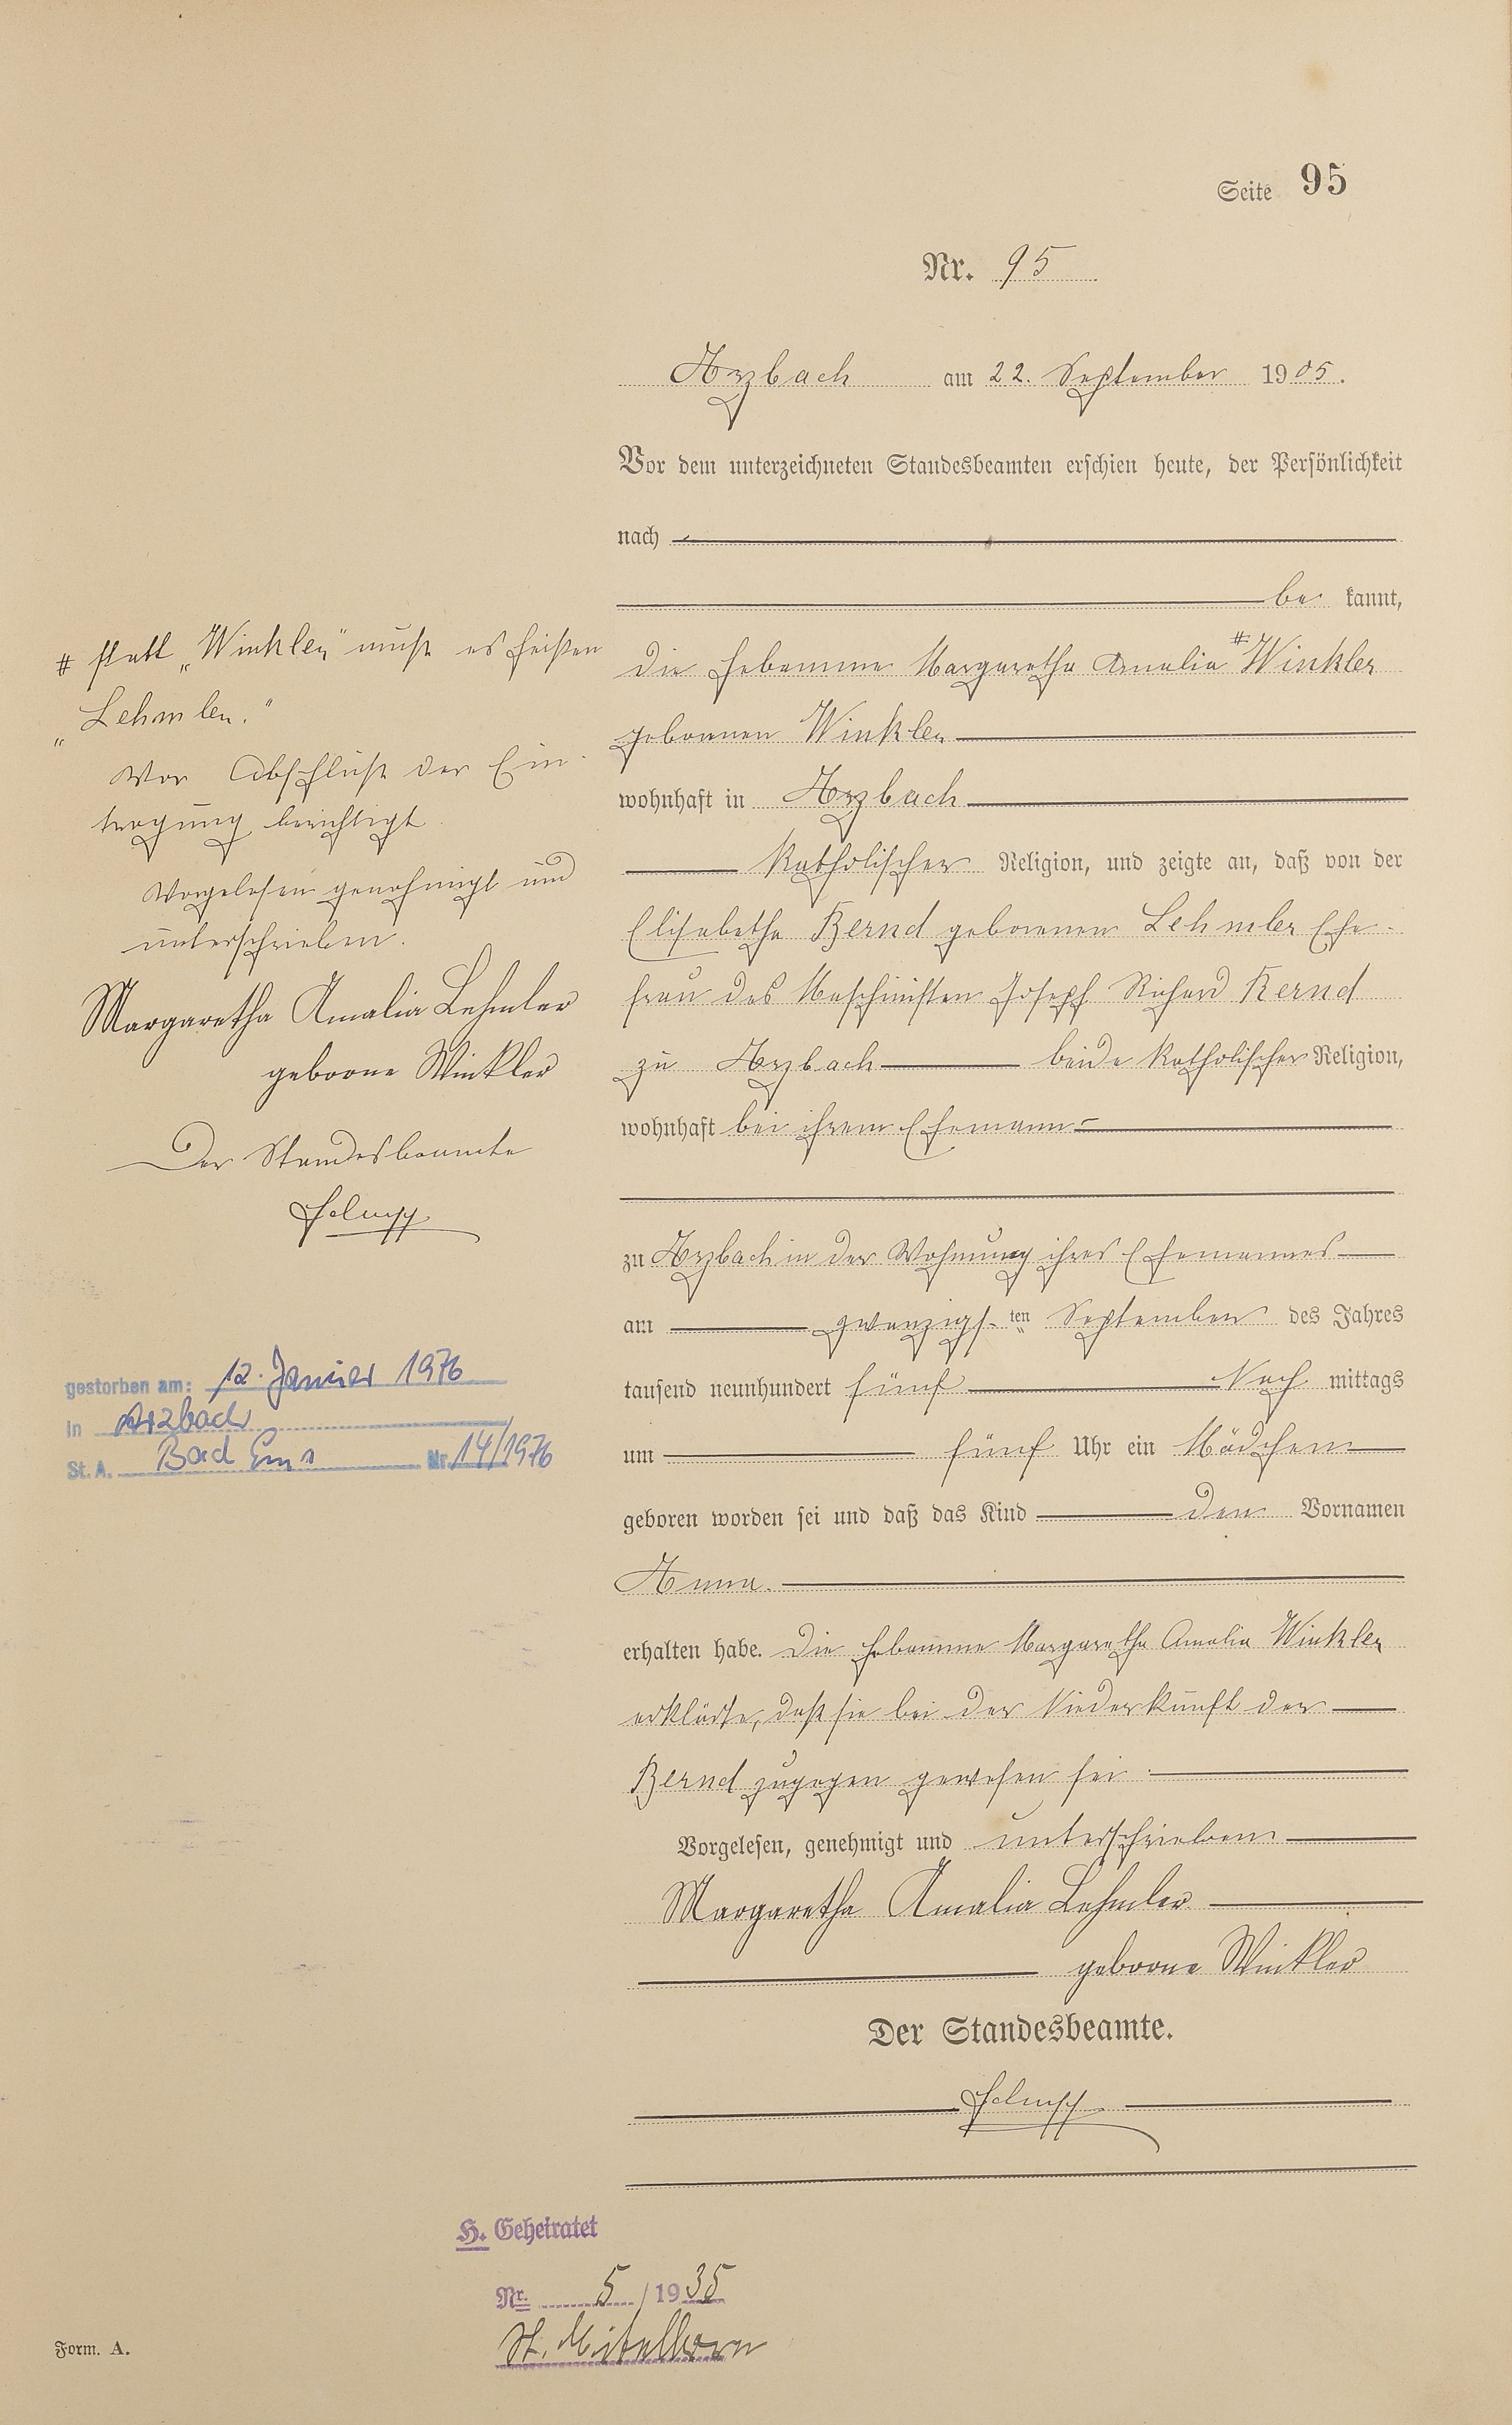 Seite 95
Nr. 95
Arzbach am 22. September 1905.
Vor dem unterzeichneten Standesbeamten erschien heute, der Persönlichkeit
nach
be kannt,
die Hebamme Margaretha Amalia # Winkler
geborenen Winkler
wohnhaft in Arzbach
katholischer Religion, und zeigte an, daß von der
Elisabetha Bernd geborenen Lehmler Ehe-
frau des Maschinisten Joseph Richard Bernd
zu Arzbach beide katholischer Religion,
wohnhaft bei ihrem Ehemann
zu Arzbach in der Wohnung ihres Ehemannes
am zwanzigsten September des Jahres
tausend neunhundert fünf Nach mittags
um fünf Uhr ein Mädchen
geboren worden sei und daß das Kind den Vornamen
Anna.
erhalten habe. Die Hebamme Margaretha Amalia Winkler
erklärte, daß sie bei der Niederkunft der
Bernd zugegen gewesen sei.
Vorgelesen, genehmigt und unterschrieben
Margaretha Amalia Lehmler
geborne Winkler
Der Standesbeamte.
# statt „Winkler" muß es heißen
„Lehmler."
Vor Abschluß der Ein-
tragung berichtigt.
Vorgelesen genehmigt und
unterschrieben.
Margaretha Amalia Lehmler
geborne Winkler
Der Standesbeamte
gestorben am: 12. Januar 1976
in Arzbach
St. A. Bad Ems Nr. 14/1976
H. Geheiratet
Nr. 5 / 1935
St.
Form. A.